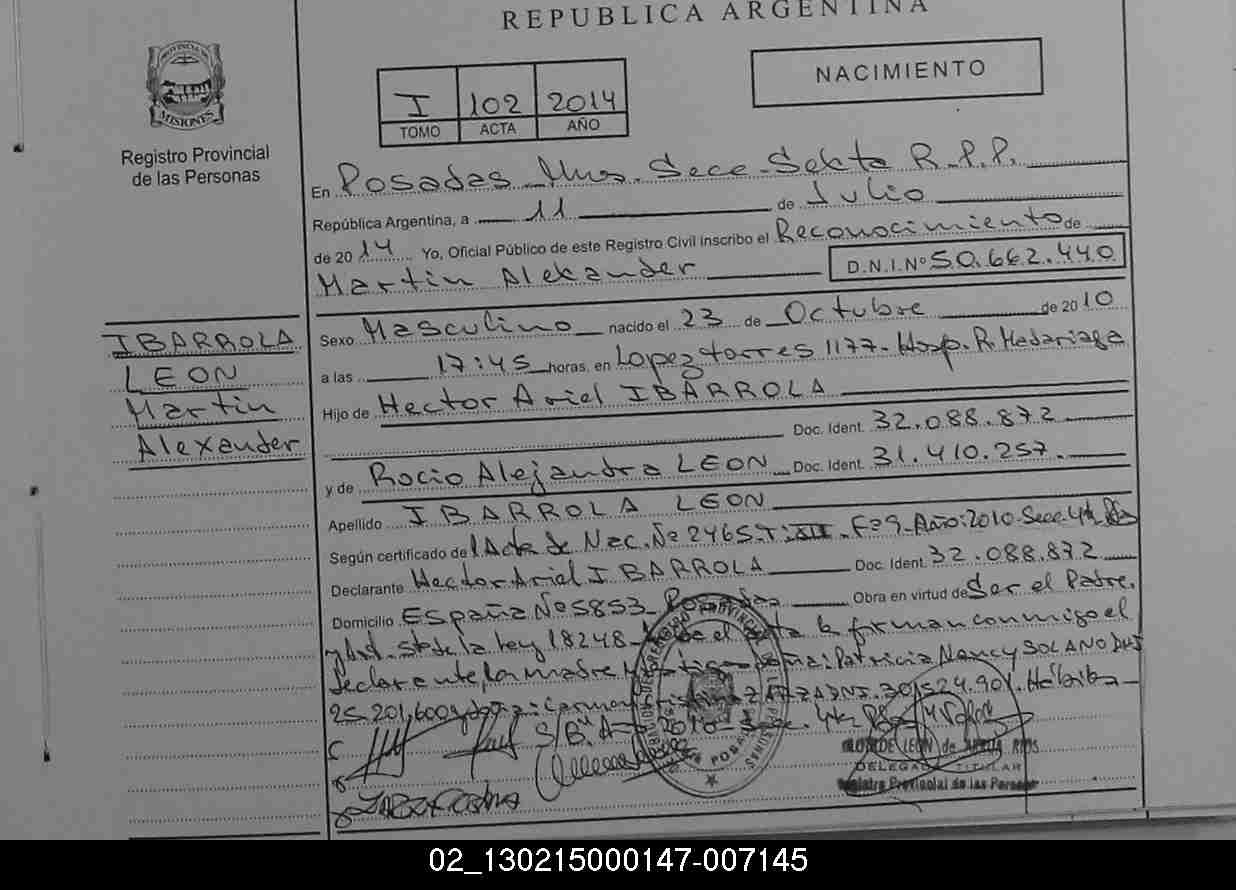 REPUBLICA ARGENTINA
PROVINCIA DE
MISIONES
Registro Provincial
de las Personas
I 102 2014
TOMO ACTA AÑO
NACIMIENTO
En Posadas Mnes. Secc. Sekta R.P.P.
República Argentina, a 11 de Julio
de 2014 Yo, Oficial Público de este Registro Civil inscribo el Reconocimiento de
Martin Alexander D.N.I.Nº 50.662.440
Sexo Masculino nacido el 23 de Octubre de 2010
a las 17:45 horas, en Lopez torres 1177- Hosp. R. Madariaga
Hijo de Hector Ariel IBARROLA
Doc. Ident. 32.088.872
y de Rocio Alejandra LEON Doc. Ident. 31.410.257.
Apellido IBARROLA LEON
Según certificado de Acta de Nac. Nº 2465-T: XII - Fº 9- Año: 2010- Secc. 4ta
Declarante Hector Ariel IBARROLA Doc. Ident. 32.088.872
Domicilio España Nº 5853- Posadas Obra en virtud de Ser el Padre.
de la Ley 18248- el acta la firman conmigo el
declarante, la madre y testigo doña: Patricia Nancy SOLANO DNI
25.201.600 y doña: Carmen ZARZA DNI. 30.524.901.
S/B. A- 2010- Secc. 4ta
DELEGADA TITULAR
Registro Provincial de las Personas
IBARROLA
LEON
Martin
Alexander
02_130215000147-007145